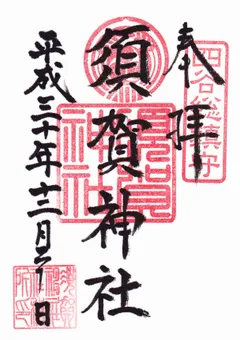 四谷総鎮守
奉拝
須賀神社
須賀神社
平成三十年十二月日